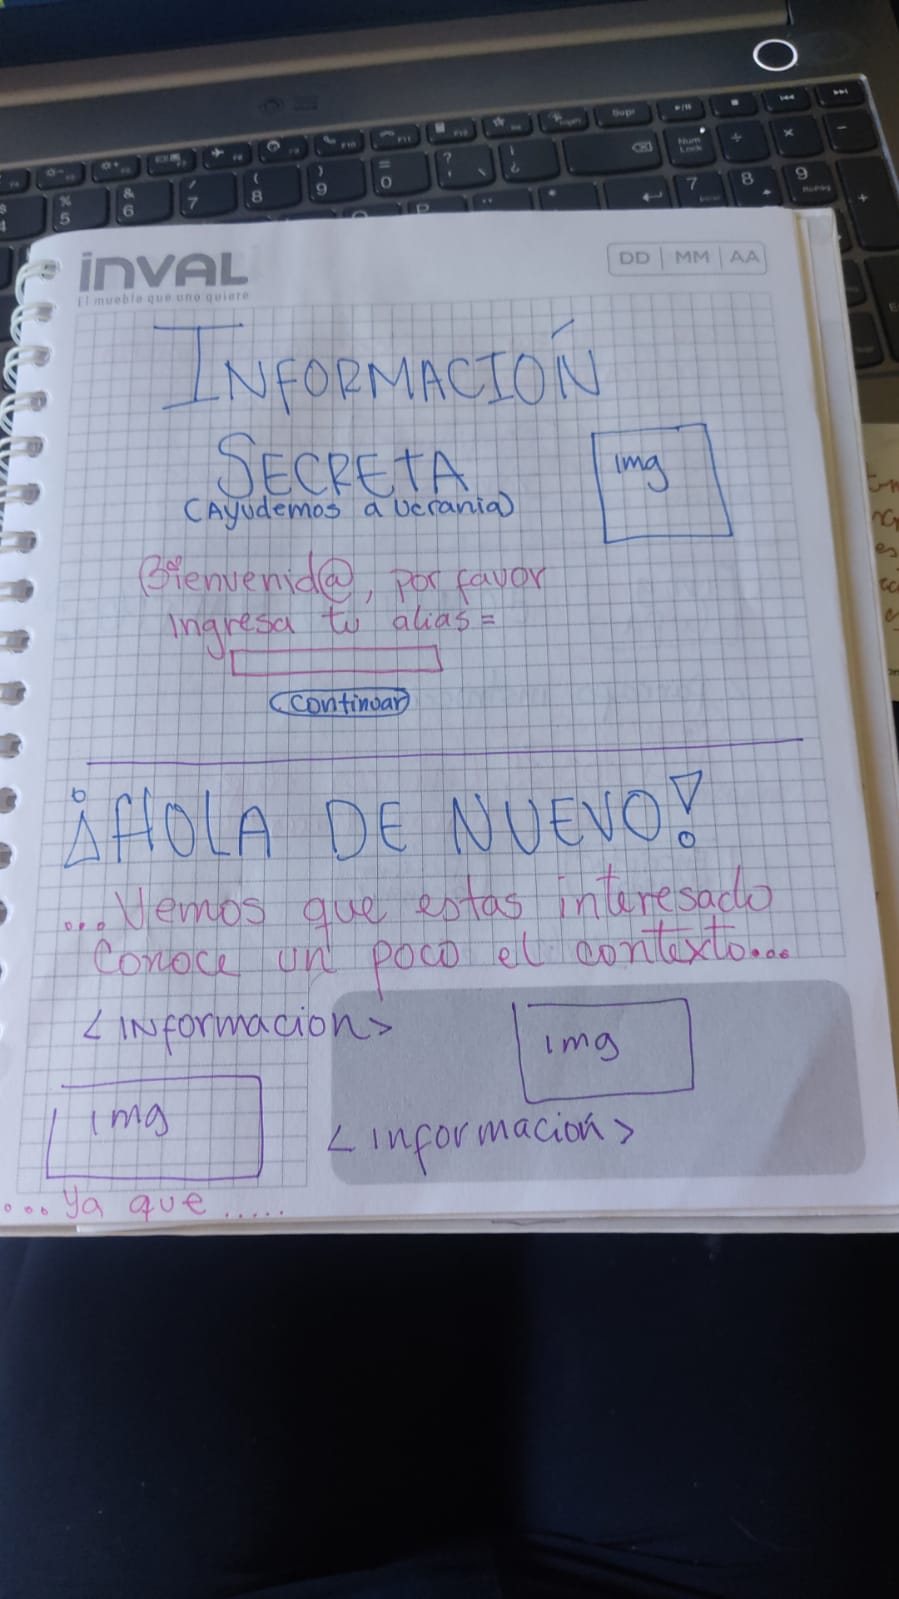 INVAL
El mueble que uno quiere
DD | MM | AA
INFORMACIÓN
SECRETA
img
(Ayudemos a Ucrania)
Bienvenid@, por favor
Ingresa tu alias=
Continuar
¡HOLA DE NUEVO!
...Vemos que estas interesado
Conoce un poco el contexto...
<INformacion>
img
img
<informacion>
...Ya que .....